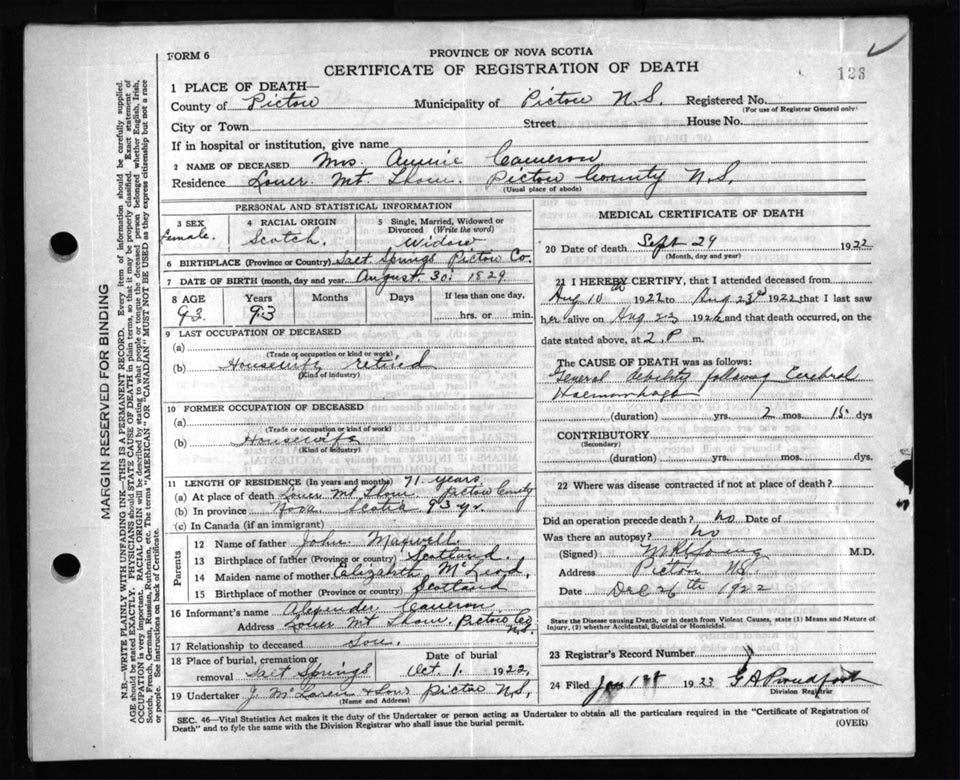 FORM 6
PROVINCE OF NOVA SCOTIA
CERTIFICATE OF REGISTRATION OF DEATH
126
1 PLACE OF DEATH—
County of Pictou Municipality of Pictou N.S. Registered No.
(For use of Registrar General only)
City or Town Street House No.
If in hospital or institution, give name
2 NAME OF DECEASED Mrs. Annie Cameron
Residence Lower Mt. Thom. Pictou County N.S.
(Usual place of abode)
PERSONAL AND STATISTICAL INFORMATION
3 SEX Female.
4 RACIAL ORIGIN Scotch.
5 Single, Married, Widowed or Divorced (Write the word) Widow
6 BIRTHPLACE (Province or Country) Salt Springs Pictou Co.
7 DATE OF BIRTH (month, day and year) August 30. 1829
8 AGE Years Months Days If less than one day,
93 93 hrs. or min.
9 LAST OCCUPATION OF DECEASED
(a)
(Trade or occupation or kind or work)
(b) Housewife retired
(Kind of industry)
10 FORMER OCCUPATION OF DECEASED
(a)
(Trade or occupation or kind or work)
(b) Housewife
(Kind of industry)
11 LENGTH OF RESIDENCE (In years and months) 71 years
(a) At place of death Lower Mt Thom Pictou County
(b) In province Nova Scotia 93 yr.
(c) In Canada (if an immigrant)
Parents
12 Name of father John Maxwell.
13 Birthplace of father (Province or country) Scotland.
14 Maiden name of mother Elizabeth McLeod.
15 Birthplace of mother (Province or country) Scotland
16 Informant's name Alexander Cameron
Address Lower Mt Thom. Pictou Co N.S.
17 Relationship to deceased Son.
18 Place of burial, cremation or removal Salt Springs Date of burial Oct 1. 1922.
19 Undertaker J. McLaren & Sons Pictou N.S.
(Name and Address)
MEDICAL CERTIFICATE OF DEATH
20 Date of death Sept 29 1922
(Month, day and year)
21 I HEREBY CERTIFY, that I attended deceased from
Aug 10th 1922 to Aug 23rd 1922 that I last saw
her alive on Aug 23 1922 and that death occurred, on the
date stated above, at 2 P m.
The CAUSE OF DEATH was as follows:
General debility following Cerebral
Haemorrhage
(duration) yrs. 2 mos. 15 dys
CONTRIBUTORY
(Secondary)
(duration) yrs. mos. dys.
22 Where was disease contracted if not at place of death?
Did an operation precede death? no Date of
Was there an autopsy? no
(Signed) Young M.D.
Address Pictou N.S.
Date Dec 26th 1922
State the Disease causing Death, or in death from Violent Causes, state (1) Means and Nature of Injury, (2) whether Accidental, Suicidal or Homicidal.
23 Registrar's Record Number
24 Filed Jan 1933 G A Proudfoot
Division Registrar
SEC. 46—Vital Statistics Act makes it the duty of the Undertaker or person acting as Undertaker to obtain all the particulars required in the "Certificate of Registration of
Death" and to fyle the same with the Division Registrar who shall issue the burial permit.
(OVER)
MARGIN RESERVED FOR BINDING
N.B.—WRITE PLAINLY WITH UNFADING INK—THIS IS A PERMANENT RECORD. Every item of information should be carefully supplied.
AGE should be stated EXACTLY. PHYSICIANS should STATE CAUSE OF DEATH in plain terms, so that it may be properly classified. Exact statement of
OCCUPATION is very important. RACIAL ORIGIN will be described by stating to what people or tongue the deceased person belonged whether English, Irish,
Scotch, French, German, Russian, Ruthenian, etc. The terms "AMERICAN" OR "CANADIAN" MUST NOT BE USED as they express citizenship but not a race
or people. See instructions on back of Certificate.